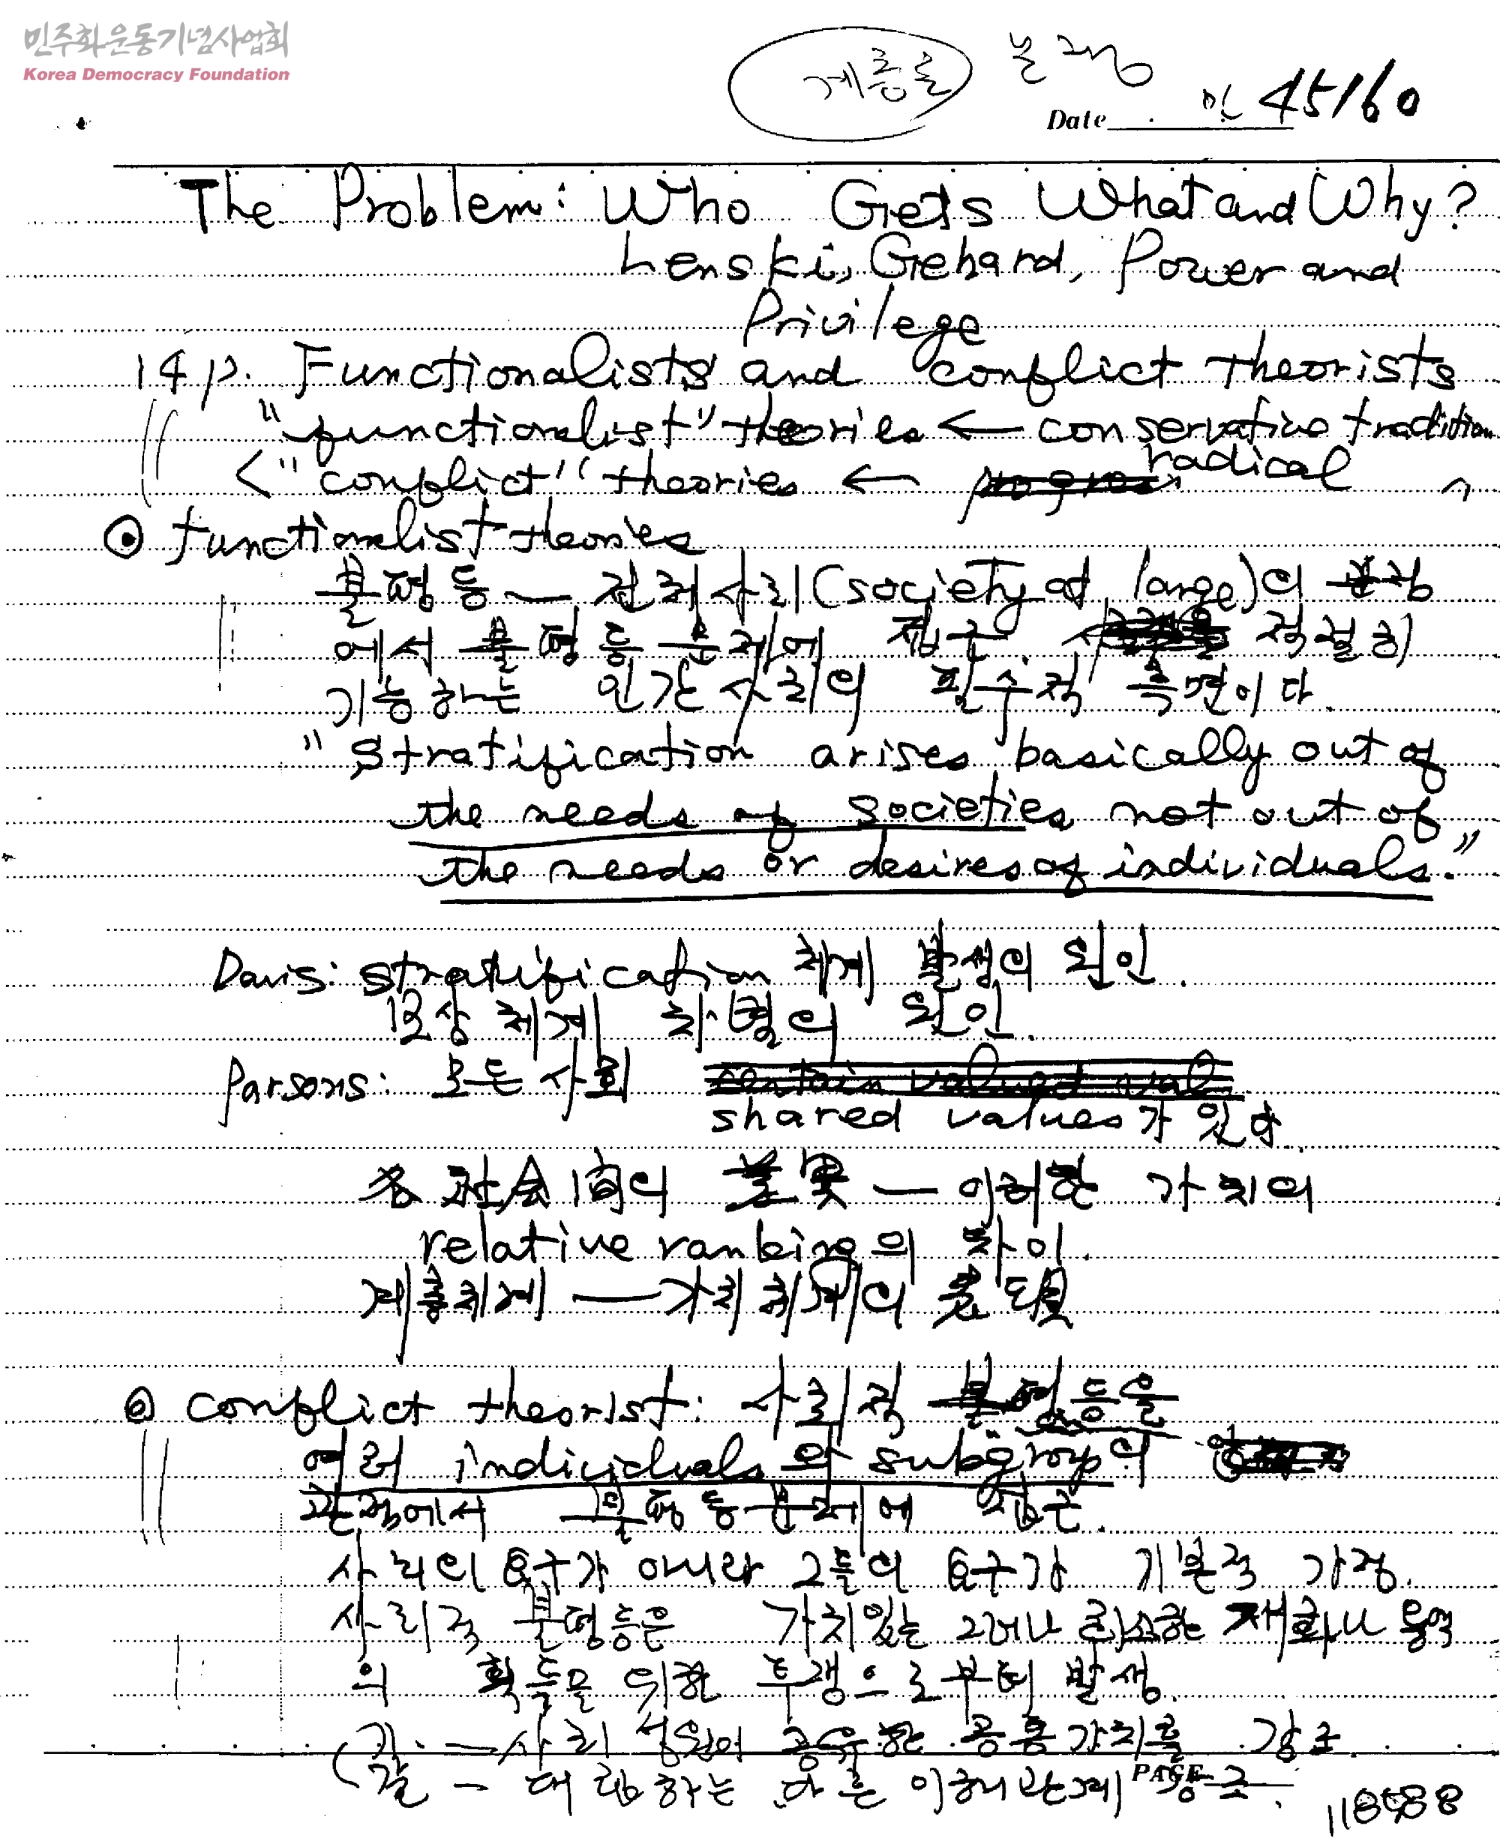 민주화운동기념사업회
Korea Democracy Foundation
계층론
Date 민 45160
The Problem: Who Gets What and Why?
Lenski, Gehard, Power and
Privilege
14p. Functionalists and conflict theorists
"functionalist" theories ← conservative tradition
< "conflict" theories ← radical 〃
⊙ functionalist theories
불평등 — 전체사회(society at large)의 관점
에서 불평등 문제에 접근. 적절히
기능하는 인간사회의 필수적 측면이다.
"Stratification arises basically out of
the needs of societies not out of
the needs or desires of individuals."
Davis: stratification 체계 발생의 원인.
보상 체계 차별의 원인.
Parsons: 모든 사회
shared values가 있다.
各 社会間의 差異 — 이러한 가치의
relative ranking의 차이.
계층체계 — 가치체계의
⊙ conflict theorist: 사회적 불평등을
여러 individuals와 subgroup의
관점에서 불평등문제에 접근.
사회의 요구가 아니라 그들의 요구가 기본적 가정.
사회적 불평등은 가치있는 그러나 희소한 재화나 용역
의 획득을 위한 투쟁으로부터 발생.
기 — 사회 성원이 공유한 공통가치를 강조.
갈 — 대립하는 다른 이해관계 강조.
PAGE
118588